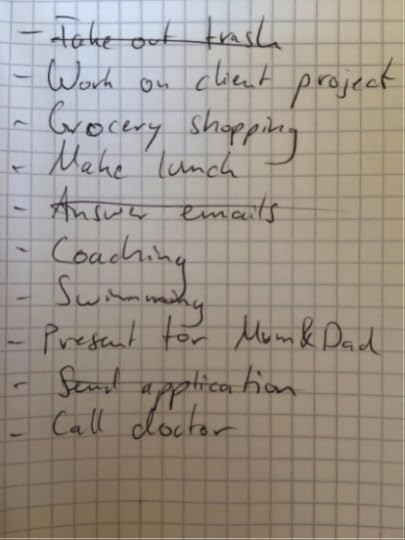 - Take out trash
- Work on client project
- Grocery shopping
- Make lunch
- Answer emails
- Coaching
- Swimming
- Present for Mum & Dad
- Send application
- Call doctor